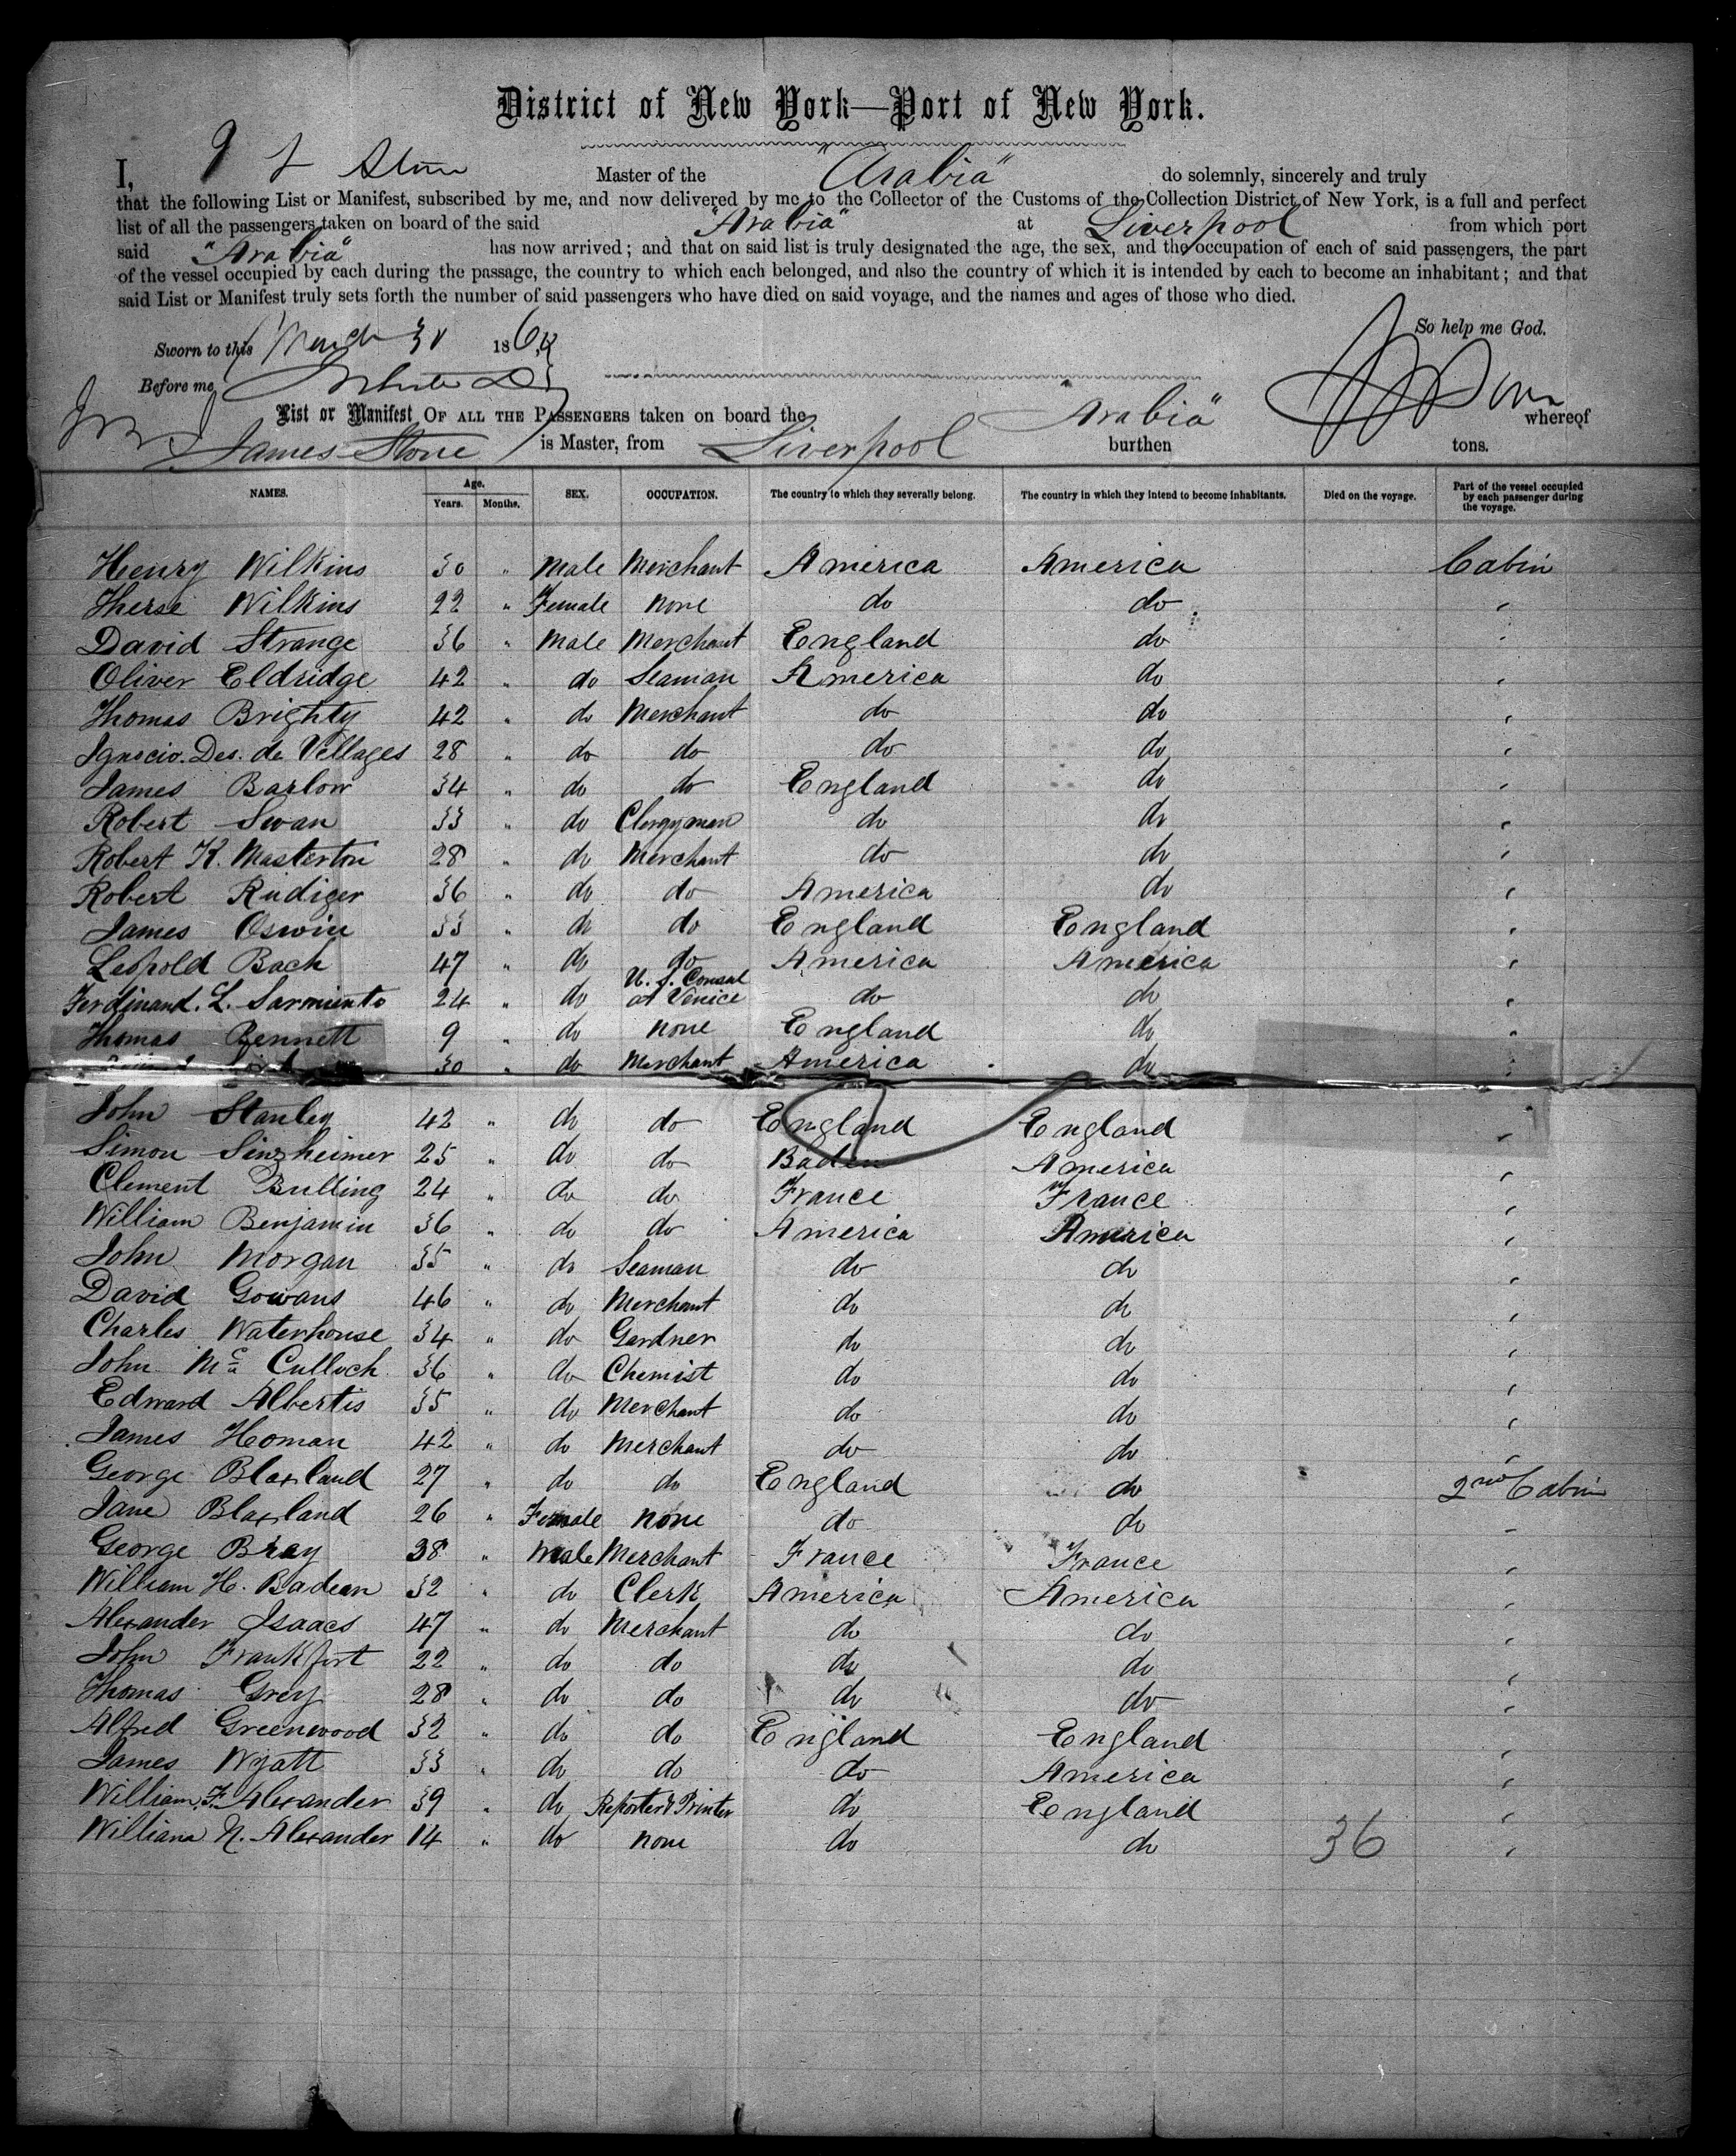 District of New York—Port of New York.
I, Master of the "Arabia" do solemnly, sincerely and truly
that the following List or Manifest, subscribed by me, and now delivered by me to the Collector of the Customs of the Collection District of New York, is a full and perfect
list of all the passengers taken on board of the said "Arabia" at Liverpool from which port
said "Arabia" has now arrived; and that on said list is truly designated the age, the sex, and the occupation of each of said passengers, the part
of the vessel occupied by each during the passage, the country to which each belonged, and also the country of which it is intended by each to become an inhabitant; and that
said List or Manifest truly sets forth the number of said passengers who have died on said voyage, and the names and ages of those who died.
So help me God.
Sworn to this March 186
Before me
List or Manifest OF ALL THE PASSENGERS taken on board the Arabia" whereof
James Stone is Master, from Liverpool burthen tons.
NAMES. Age. Years. Months. SEX. OCCUPATION. The country to which they severally belong. The country in which they intend to become inhabitants. Died on the voyage. Part of the vessel occupied by each passenger during the voyage.
Henry Wilkins 30 " Male Merchant America America Cabin
Therse Wilkins 22 " Female none do do "
David Strange 36 " Male Merchant England do "
Oliver Eldridge 42 " do Seaman America do "
Thomas Brighty 42 " do Merchant do do "
Ignocio. Des. de Villages 28 " do do do do "
James Barlow 34 " do do England do "
Robert Swan 33 " do Clergyman do do "
Robert K. Masterton 28 " do Merchant do do "
Robert Rudiger 36 " do do America do "
James Oswin 33 " do do England England "
Leopold Bach 47 " do do America America "
Ferdinand. L. Sarmiento 24 " do U. S. Consul at Venice do do "
Thomas Bennett 9 " do none England do "
30 " do Merchant America do "
John Stanley 42 " do do England England "
Simon Sinzheimer 25 " do do Baden America "
Clement Bulling 24 " do do France France "
William Benjamin 36 " do do America America "
John Morgan 35 " do Seaman do do "
David Gowans 46 " do Merchant do do "
Charles Waterhouse 34 " do Gardner do do "
John Mc Culloch 36 " do Chemist do do "
Edward Albertis 35 " do Merchant do do "
James Homan 42 " do Merchant do do "
George Blaxland 27 " do do England do 2nd Cabin
Jane Blaxland 26 " Female none do do "
George Bray 38 " Male Merchant France France "
William H. Badean 32 " do Clerk America America "
Alexander Isaacs 47 " do Merchant do do "
John Frankfort 22 " do do do do "
Thomas Grey 28 " do do do do "
Alfred Greenwood 32 " do do England England "
James Wyatt 33 " do do do America "
William. F. Alexander 39 " do Reporter & Printer do England "
William N. Alexander 14 " do none do do 36 "